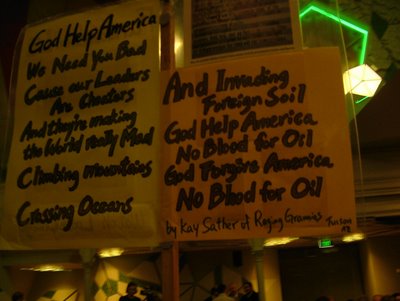 God Help America
We Need You Bad
Cause our Leaders
Are Cheaters
And they're making
the World really Mad
Climbing Mountains
Crossing Oceans
And Invading
Foreign Soil
God Help America
No Blood for Oil
God Forgive America
No Blood for Oil
by Kay Sather of Raging Grannies
Tucson
AZ